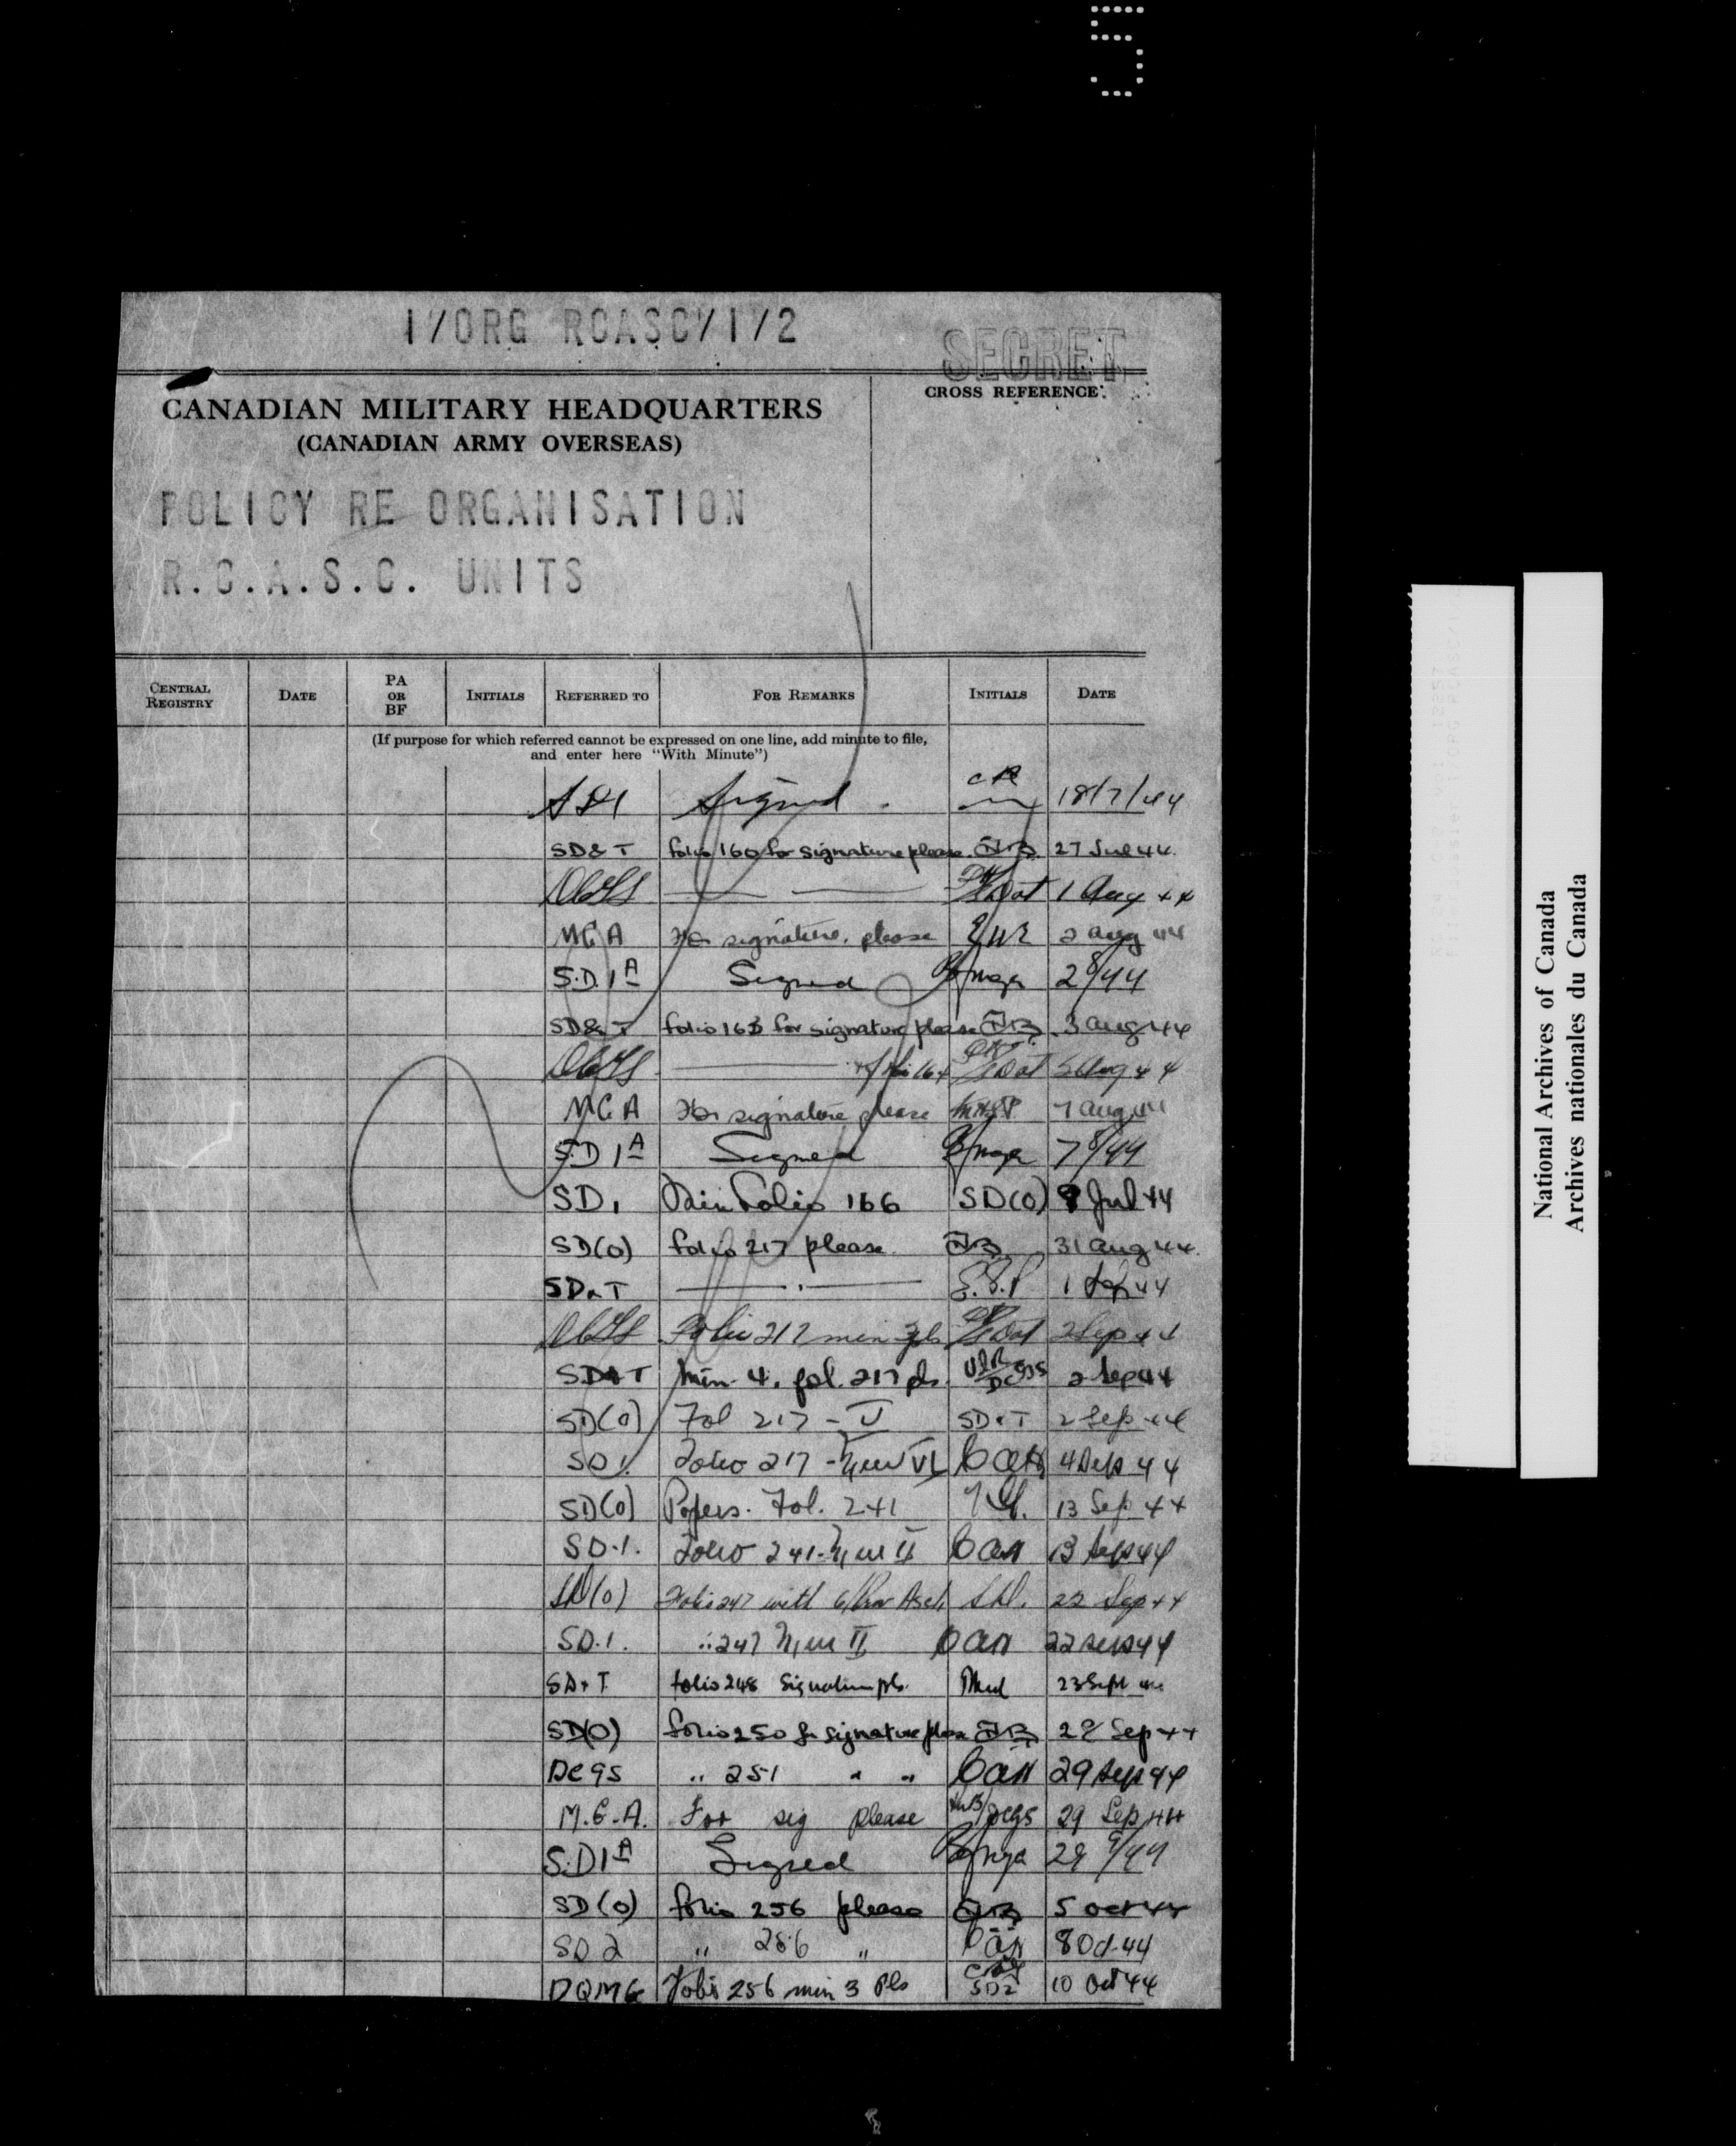 5
1/ORG RCASC/1/2
SECRET
CROSS REFERENCE:
CANADIAN MILITARY HEADQUARTERS
(CANADIAN ARMY OVERSEAS)
POLICY RE ORGANISATION
R.C.A.S.C. UNITS
CENTRAL REGISTRY DATE PA OR BF INITIALS REFERRED TO FOR REMARKS INITIALS DATE
(If purpose for which referred cannot be expressed on one line, add minute to file,
and enter here "With Minute")
SD1 Signed. 18/7/44
SD&T folio 160 for signature please. 27 Jul 44.
1 Aug 44
MGA For signature, please 2 Aug 44
S.D.1A Signed 2/8/44
SD&T folio 163 for signature please 3 Aug 44
5 Aug 44
MGA For signature please 7 Aug 44
SD1A Signed 7/8/44
SD1 Min Folio 166 SD(O) 9 Jul 44
SD(O) folio 217 please. 31 Aug 44.
SD&T 1 Sep 44
Folio 217 min 3 pls 2 Sep 44
SD&T Min. 4. fol. 217 pls. 2 Sep 44
SD(O) Fol 217 - V SD&T 2 Sep 44
SD1. Folio 217 - Min VI 4 Sep 44
SD(O) Papers. Fol. 241 13 Sep 44
SD.1. Folio 241 - Min II 13 Sep 44
SD(O) Folio 247 with 22 Sep 44
SD.1. " 247 Min II 22 Sep 44
SD&T folio 248 Signature pls. 23 Sept 44
SD(O) folio 250 for signature please 28 Sep 44
DCGS " 251 " " 29 Sep 44
M.G.A. For sig please DCGS 29 Sep 44
S.D1A Signed 29/9/44
SD(O) folio 256 please 5 Oct 44
SD2 " 256 " 8 Oct 44
DQMG Folio 256 min 3 Pls SD2 10 Oct 44
National Archives of Canada
Archives nationales du Canada